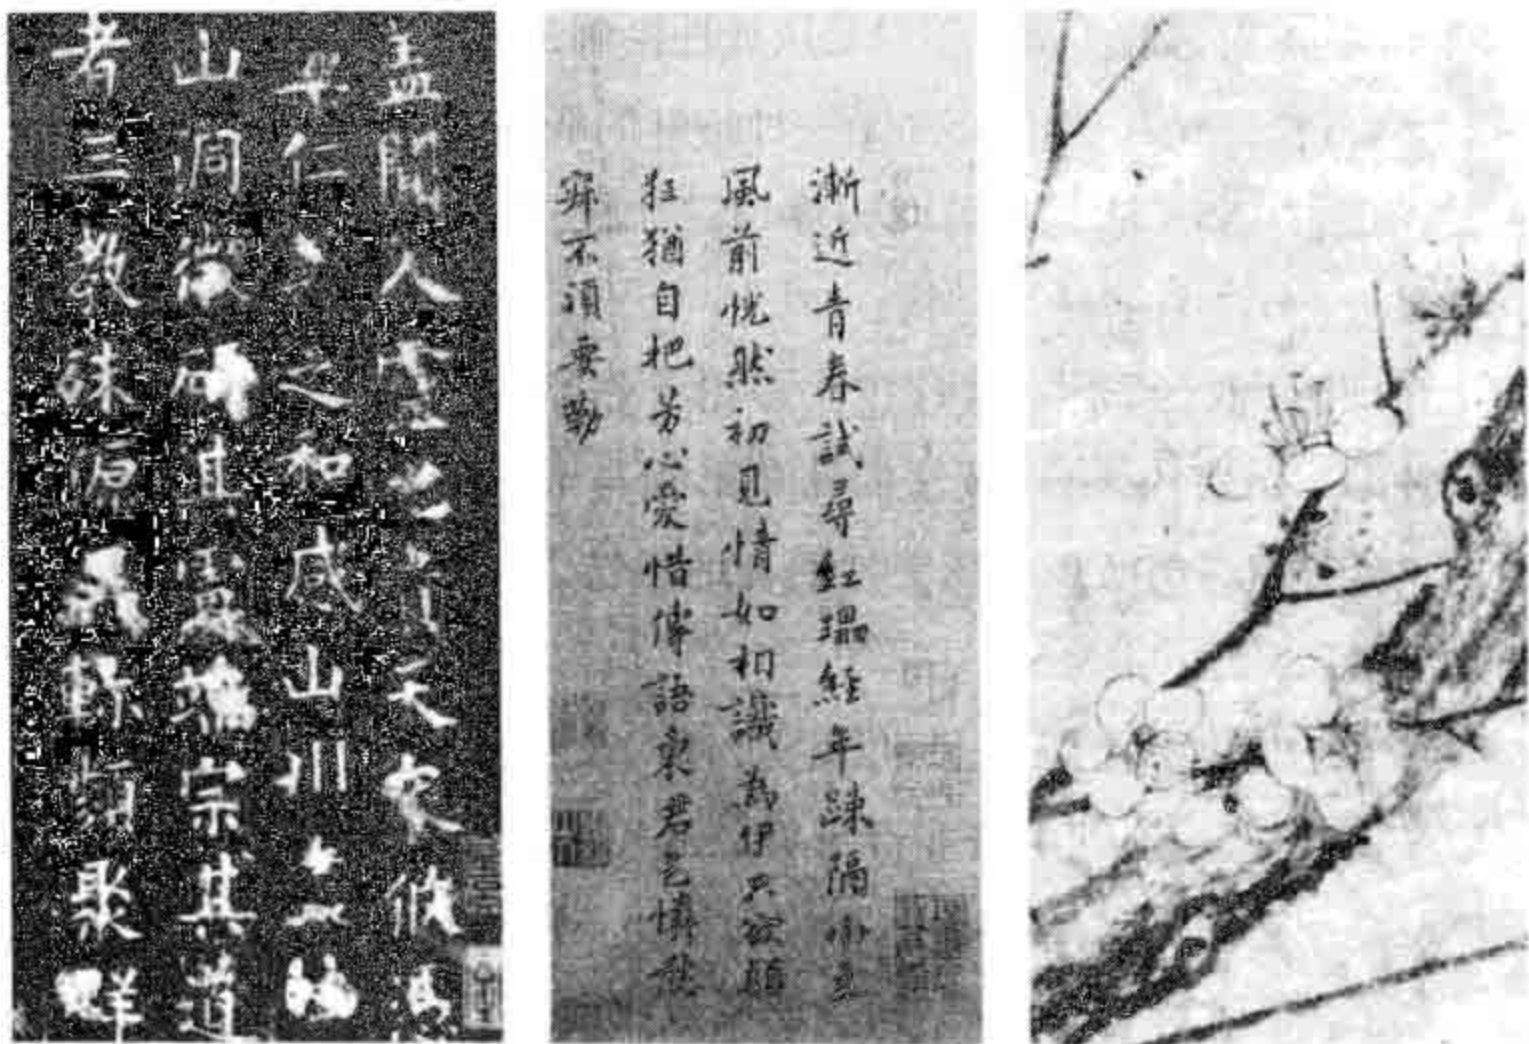 盖聞人靈之天象攸馮
仁之和感山川
山洞微研其慮壖宗其道
者三教殊源異軫類聚群
漸近青春試尋紅瓃經年踈隔小立
風前恍然初見情如相識為伊只欲顛
狂猶自把芳心愛惜傳語東君乞憐愁
寂不須要勒